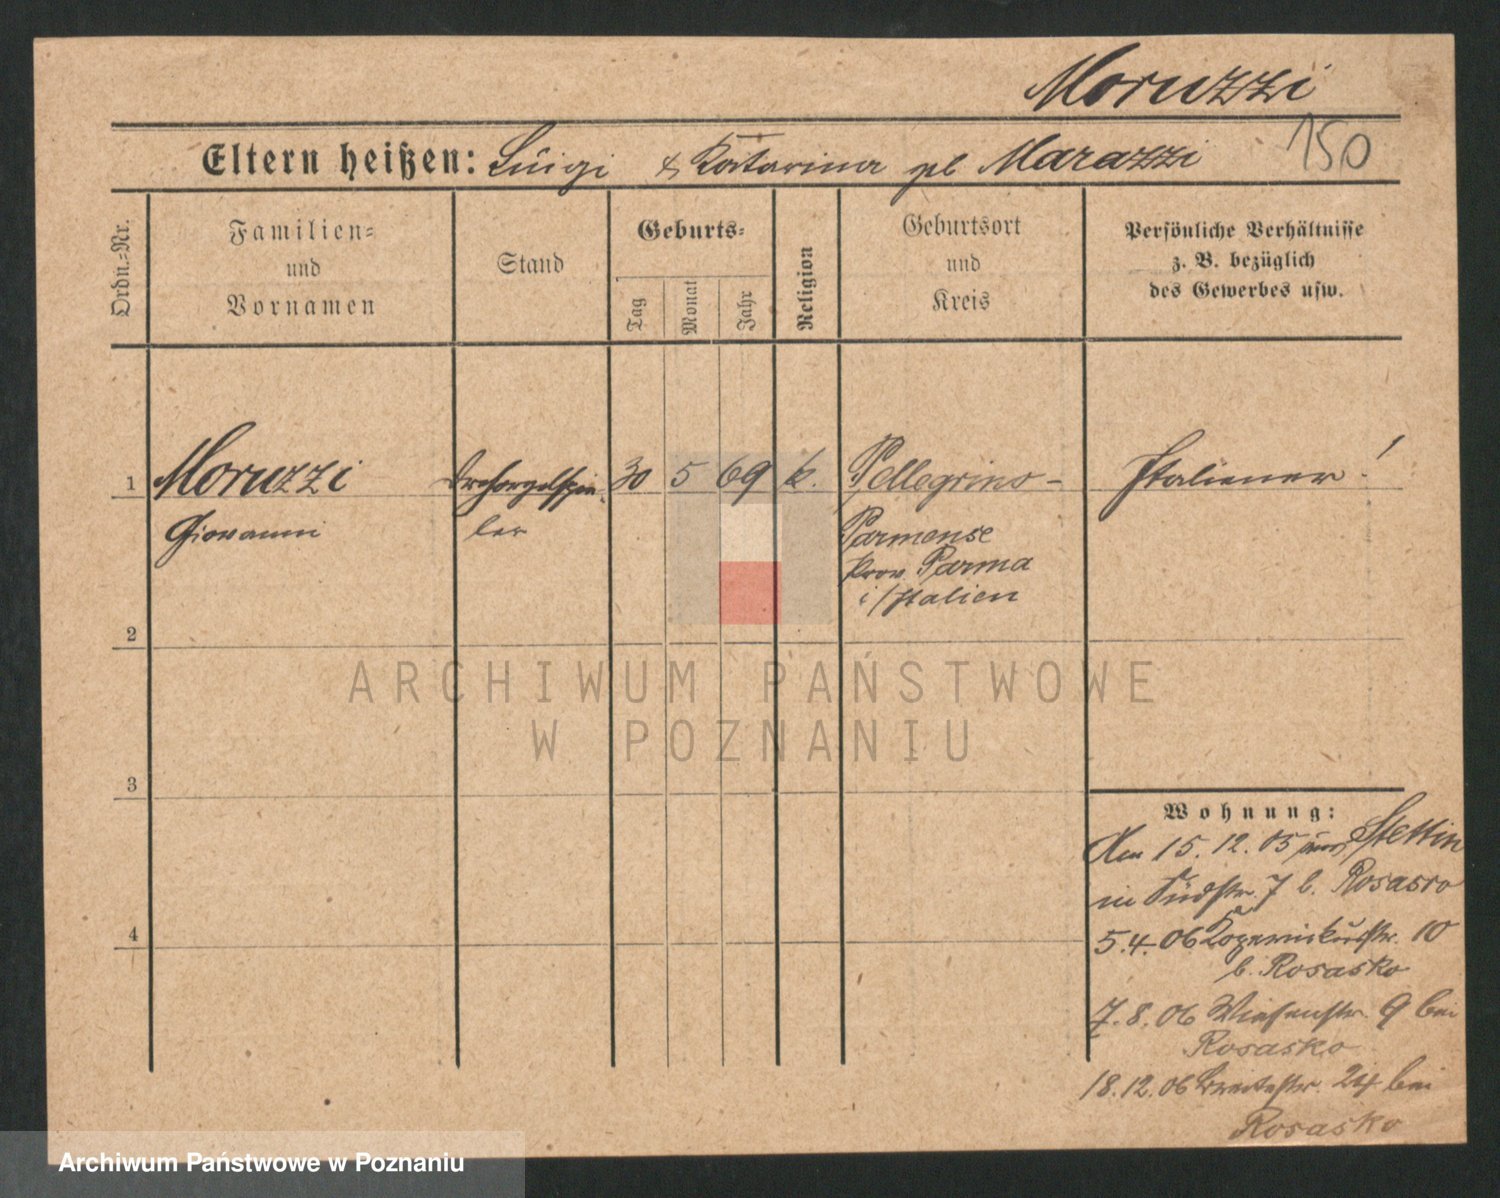 Moruzzi
150
Eltern heißen: Luigi & Katarina geb Marazzi
Ordn.-Nr.
Familien-
und
Vornamen
Stand
Geburts-
Tag
Monat
Jahr
Religion
Geburtsort
und
Kreis
Persönliche Verhältnisse
z. B. bezüglich
des Gewerbes usw.
1 Moruzzi Drehorgelspie- 30 5 69 k. Pellegrino- Italiener!
Giovanni ler Parmense
prov. Parma
i/Italien
2
3
4
Wohnung:
Am 15. 12. 05 Stettin
in Südstr. 7 b. Rosasco
5. 4. 06 Kopernikusstr. 10
b. Rosasko
7. 8. 06 Wiesenstr. 9 bei
Rosasko
18. 12. 06 Breitestr. 24 bei
Rosasko
ARCHIWUM PAŃSTWOWE
W POZNANIU
Archiwum Państwowe w Poznaniu